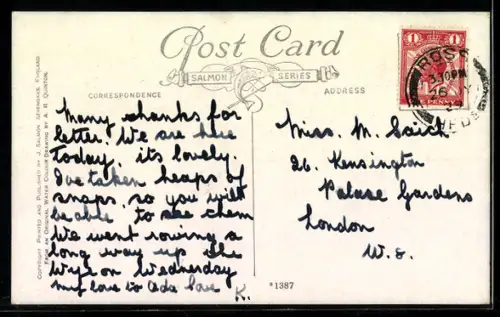 Post Card
SALMON SERIES
CORRESPONDENCE
ADDRESS
COPYRIGHT PRINTED AND PUBLISHED BY J. SALMON SEVENOAKS, ENGLAND.
FROM AN ORIGINAL WATER COLOUR DRAWING BY A. R. QUINTON.
Many thanks for
letter. We are here
today, its lovely.
I've taken heaps of
snaps, so you will
be able to see them
We went rowing a
long way up the
Wye on Wednesday
my love to Ada love K.
Miss. M.
26. Kensington
Palace Gardens
London
W. 8.
*1387
1 1
PENNY
ROSS
3.30PM
16